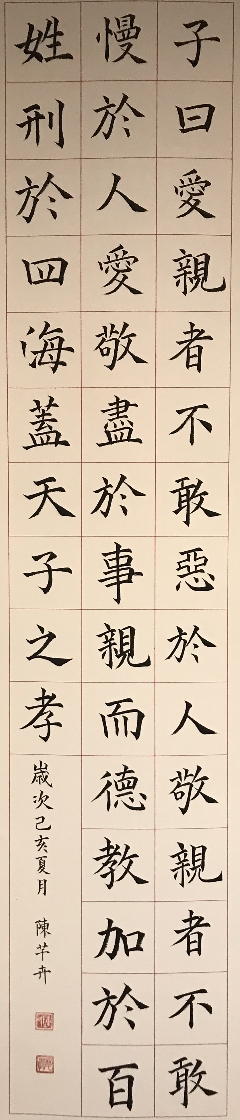 子曰愛親者不敢惡於人敬親者不敢
慢於人愛敬盡於事親而德教加於百
姓刑於四海蓋天子之孝
歲次己亥夏月 陳芊卉